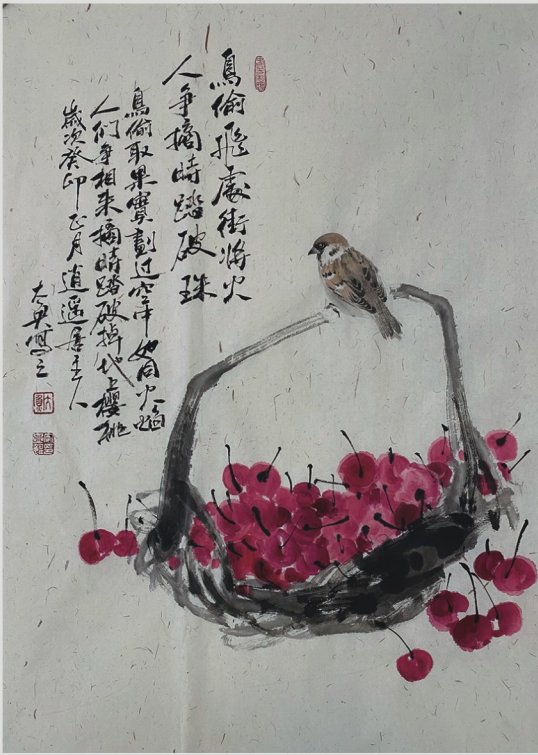 鳥偷飛處銜將火
人爭摘時踏破珠
鳥偷取果實劃过空中如同火焰
人们争相来摘時踏破掉地上櫻桃
歲次癸卯正月逍遥居主人
大